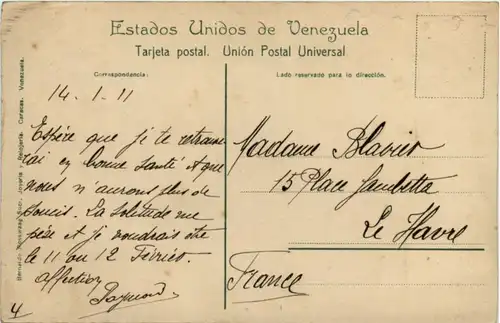 Estados Unidos de Venezuela
Tarjeta postal. Unión Postal Universal
Correspondencia.
Lado reservado para la dirección.
14.1.11
Espère que je te retrouve
rai en bonne santé et que
nous n'aurons plus de
soucis. La solitude me
pèse et je voudrais être
le 11 ou 12 Février.
affection
Raymond
Madame Blavier
15 Place Gambetta
Le Havre
France
Joyería Relojería. Caracas. Venezuela.
4